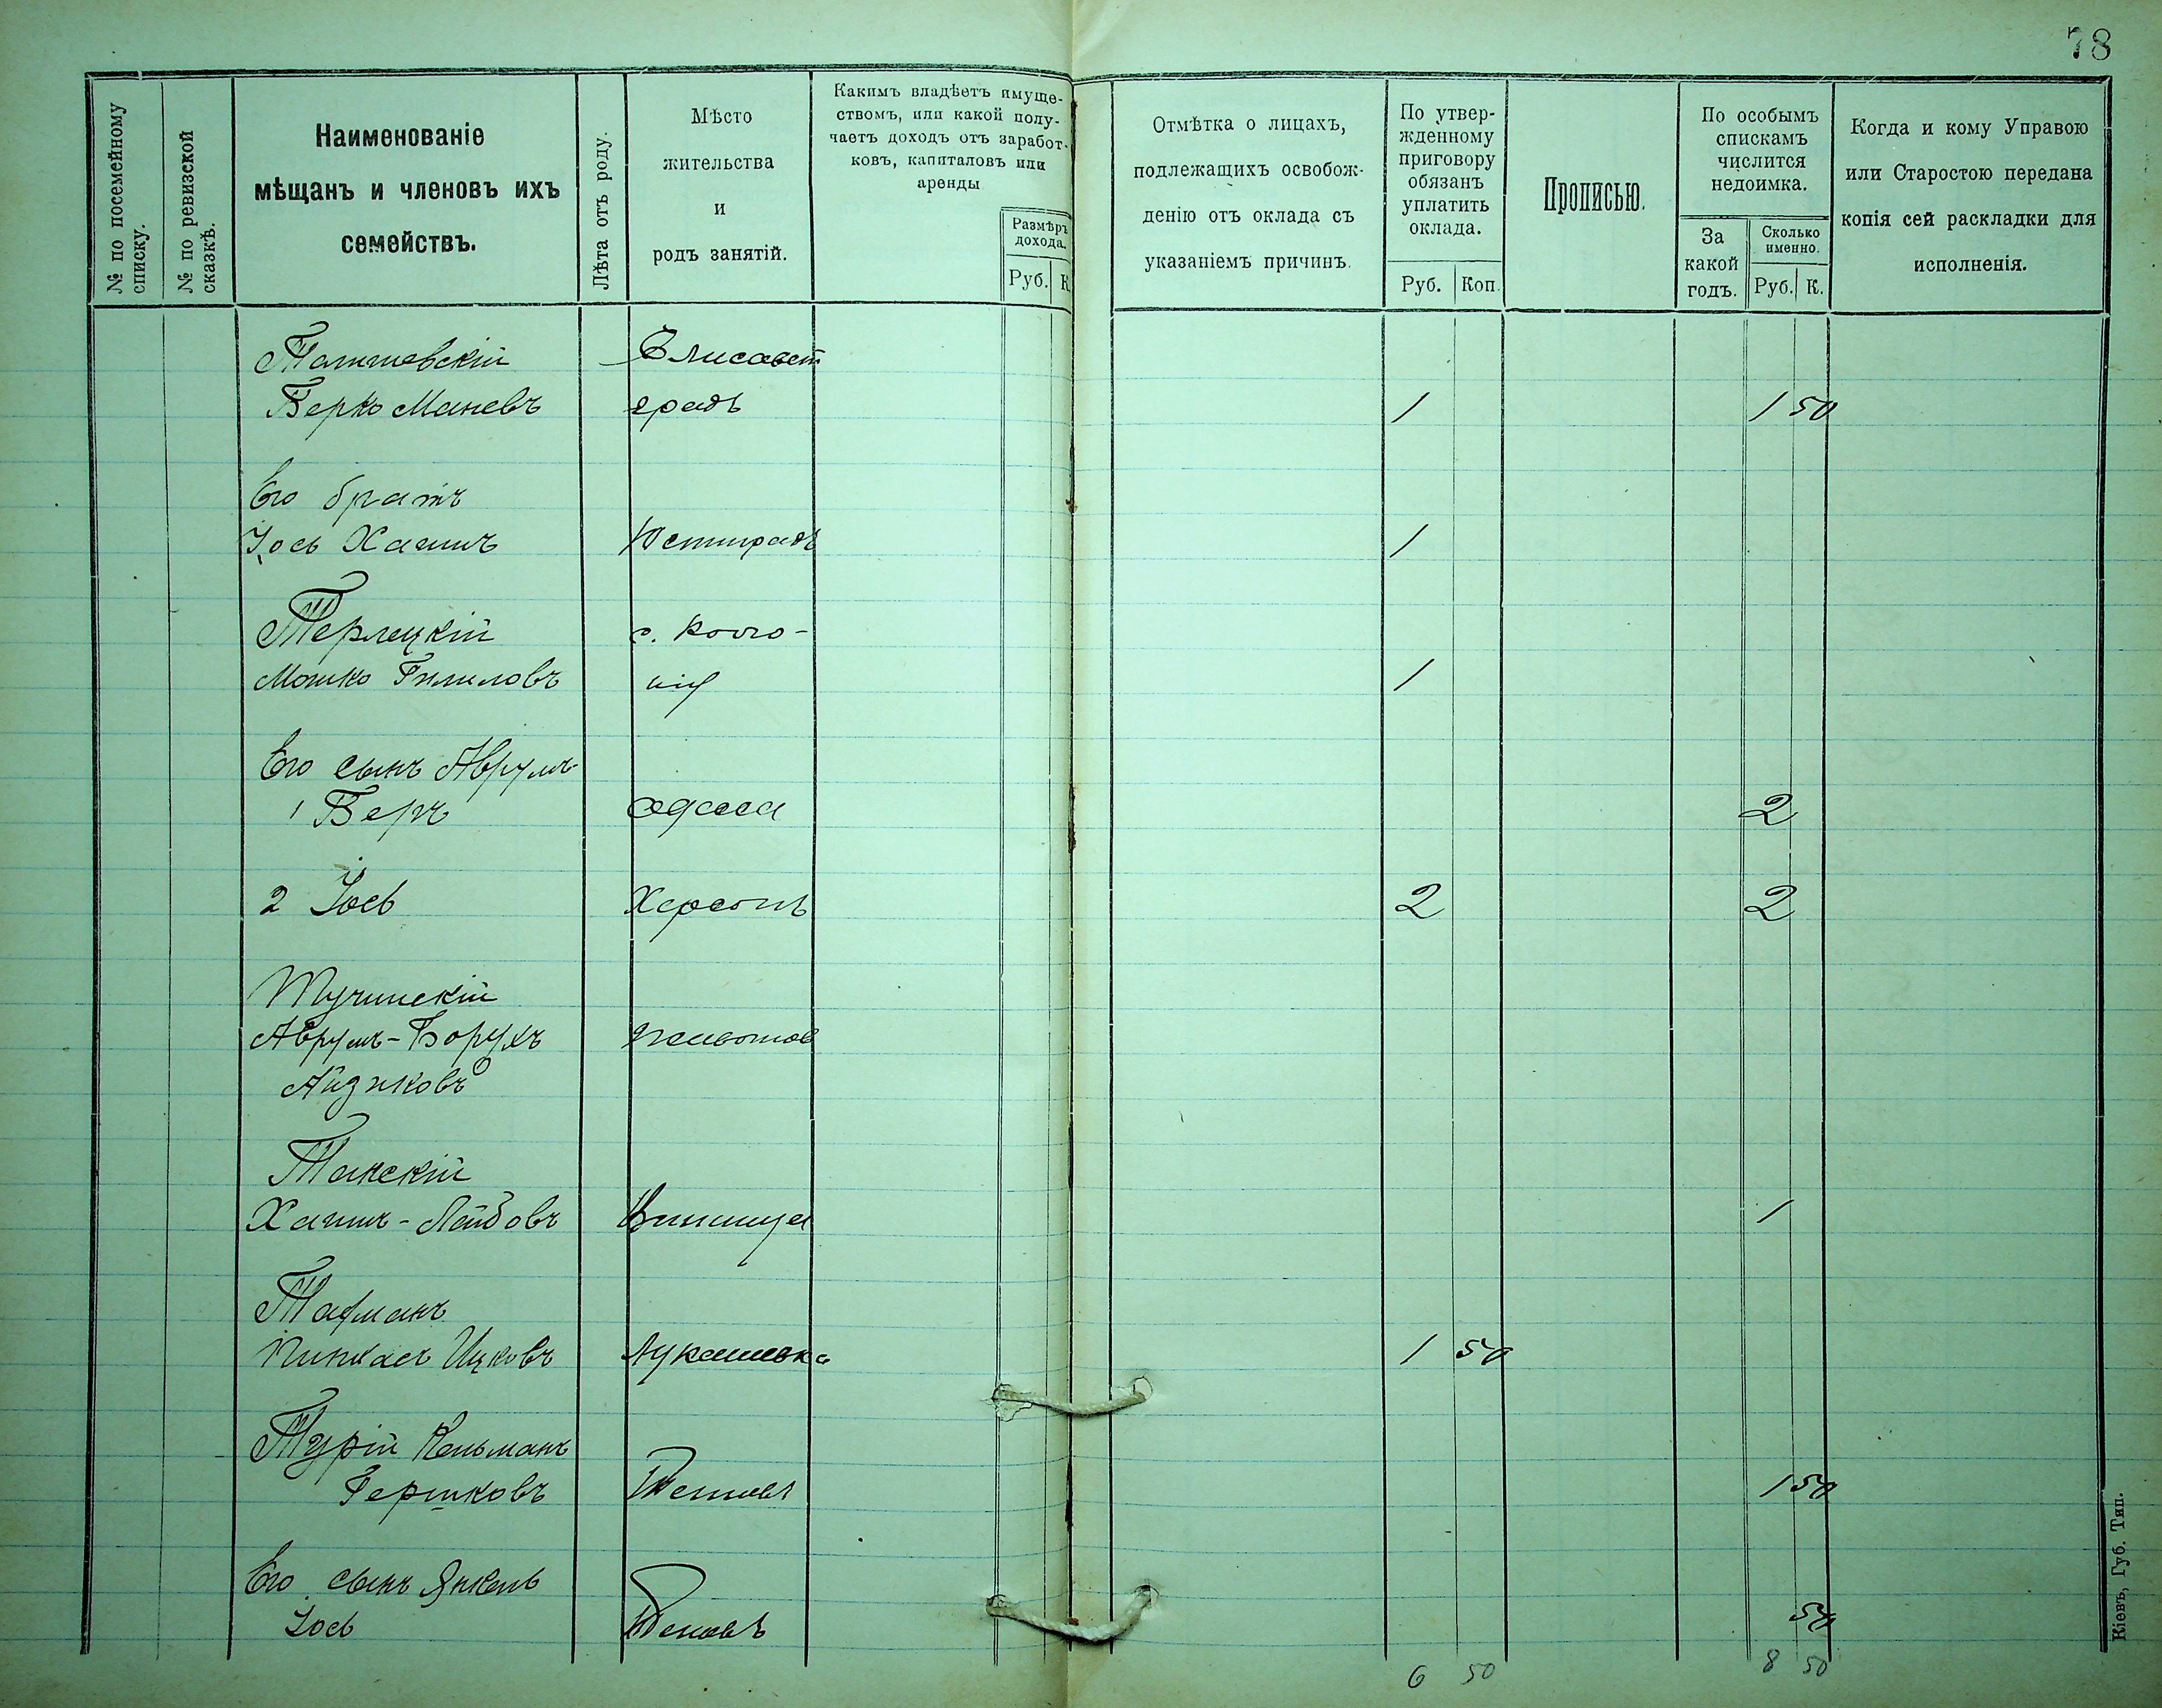 78
№ по посемейному списку.
№ по ревизской сказкѣ.
Наименованіе
мѣщанъ и членовъ ихъ
семействъ.
Лѣта отъ роду.
Мѣсто
жительства
и
родъ занятій.
Какимъ владѣетъ имуще-
ствомъ, или какой полу-
чаетъ доходъ отъ заработ-
ковъ, капиталовъ или
аренды
Размѣръ
дохода.
Руб. К.
Отмѣтка о лицахъ,
подлежащихъ освобож-
денію отъ оклада съ
указаніемъ причинъ.
По утвер-
жденному
приговору
обязанъ
уплатить
оклада.
Руб. Коп.
Прописью.
По особымъ
спискамъ
числится
недоимка.
За
какой
годъ.
Сколько
именно.
Руб. К.
Когда и кому Управою
или Старостою передана
копія сей раскладки для
исполненія.
Елисавет
Берко Маневъ градъ 1 1 50
Его братъ
Іось Хаимъ Юстинградъ 1
Терлецкій с.
Мошко 1
Его сынъ Аврумъ-
1 Беръ Одесса 2
2 Іось Херсонъ 2 2
Тучинскій
Аврумъ-Борухъ Животов
Айзиковъ
Танскій
Хаимъ-Лейбовъ Винница 1
Тафманъ
Пинхасъ Ицковъ Лукашевка 1 50
Турій Кельманъ
Гершковъ 1 50
Его сынъ Янкель
Іось 50
6 50 8 50
Кіевъ, Губ. Тип.